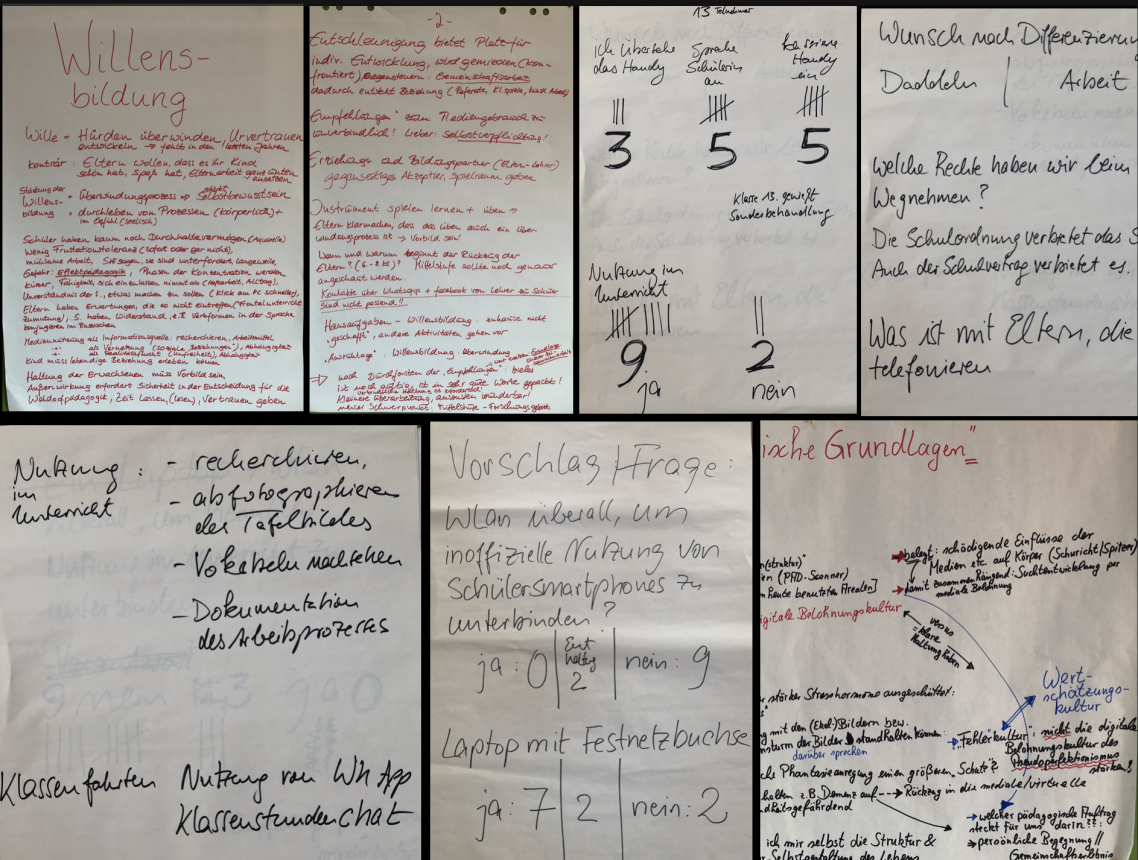 Willens-
bildung
Wille = Hürden überwinden, Urvertrauen
entwickeln → fehlt in den letzten Jahren
konträr: Eltern wollen, dass es ihr Kind
schön hat, Spaß hat, Elternarbeit ganz unten
ansetzen
Stärkung der
Willens-
bildung
• Überwindungsprozess → stärkt Selbstbewusstsein
• durchleben von Prozessen (körperlich) +
im Gefühl (seelisch)
Schüler haben kaum noch Durchhaltevermögen (Aquarelle)
wenig Frustrationstoleranz (sofort oder gar nicht),
mühsame Arbeit, SuS sagen, sie sind unterfordert, Langeweile
Gefahr: Effektpädagogik, Phasen der Konzentration werden
kürzer, Fähigkeit, sich einzulassen, nimmt ab (Epharbeit, Alltag),
Unverständnis der S., etwas machen zu sollen (Klick am PC schneller),
Eltern haben Erwartungen, die so nicht eintreffen (Frontalunterricht
Zumutung), S. haben Widerstand, z.B. Verbformen in der Sprache
konjugieren im Russischen
Mediennutzung als Informationsquelle: recherchieren, Arbeitsmittel
als Vernetzung (soziale Beziehungen), Abhängigkeit
als Realitätsflucht (Unfreiheit), Abhängigkeit
Kind muss lebendige Beziehung erleben können
Haltung der Erwachsenen muss Vorbild sein
Außenwirkung erfordert Sicherheit in der Entscheidung für die
Waldorfpädagogik, Zeit lassen, (lesen), Vertrauen geben
-2-
Entschleunigung bietet Platz für
indiv. Entwicklung, wird gemieden (kon-
frontiert), Gegensteuern: Gemeinschaftsarbeit
dadurch entsteht Beziehung (Referate, Kl.spiele, künstl. Arbeit)
"Empfehlungen" zum Mediengebrauch zu
unverbindlich! Lieber: Selbstverpflichtung!
Erziehungs- und Bildungspartner (Eltern-Lehrer)
gegenseitiges Akzeptieren, Spielraum geben
Instrument spielen lernen + üben →
Eltern klarmachen, dass das Üben auch ein Über-
windungsprozess ist → Vorbild sein
Wann und warum beginnt der Rückzug der
Eltern? (6.-8. Kl.)? Mittelstufe sollte noch genauer
angeschaut werden.
Kontakte über Whatsapp + facebook von Lehrer zu Schüler
sind nicht passend!!
Hausaufgaben - Willensbildung: zuhause nicht
"geschafft", andere Aktivitäten gehen vor
Willensbildung: Überwindung
→ nach Durchforsten der "Empfehlungen": vieles
ist noch gültig, ist in sehr gute Worte gepackt!
Kleinere Überarbeitung, ansonsten wunderbar!
Schwerpunkt: Mittelstufe - Forschungsgebiet
13 Teilnehmer
ich übersehe
das Handy
Spreche
Schülerin
an
Kassiere
Handy
ein
3 5 5
Klasse 13. genießt
Sonderbehandlung
Nutzung im
Unterricht
9 2
ja nein
Wunsch nach Differenzierun
Daddeln | Arbeit
welche Rechte haben wir beim
Wegnehmen?
Die Schulordnung verbietet das S
Auch der Schulvertrag verbietet es.
Was ist mit Eltern, die
telefonieren
Nutzung
im
Unterricht
: - recherchieren,
- abfotographieren
des Tafelbildes
- Vokabeln nachsehen
- Dokumentation
des Arbeitsprozesses
Klassenfahrten Nutzung von Wh App
Klassenstundenchat
Vorschlag/Frage:
Wlan überall, um
inoffizielle Nutzung von
Schülersmartphones zu
unterbinden?
ja: 0 | Ent
haltg
2 | nein: 9
Laptop mit Festnetzbuchse
ja: 7 | 2 | nein: 2
ische Grundlagen"
(struktur)"
en (PMD-Scanner)
n heute benutzten Arealen]
igitale Belohnungskultur
→ belegt: schädigende Einflüsse der
Medien etc. auf Körper (Schuricht/Spitzer)
→ damit zusammenhängend: Suchtentwicklung per
mediale Belohnung
versus
klare
Haltung haben
Wert-
schätzungs-
kultur
er stärker Stresshormone ausgeschüttet:
g mit den (Ekel-)Bildern bzw.
nsturm der Bilder standhalten können:
darüber sprechen
→ "Fehlerkultur": nicht die digitale
Belohnungskultur des
Pseudoperfektionismus
stärken!
che Phantasieanregung einen größeren Schutz?
halten z.B. Demenz auf ---→ Rückzug in die mediale/virtuelle
ndheitsgefährdend
→ welcher pädagogische Auftrag
steckt für uns darin??:
→ persönliche Begegnung//
Gemeinschaftserlebnis
ich mir selbst die Struktur &
Selbstgestaltung des Lebens